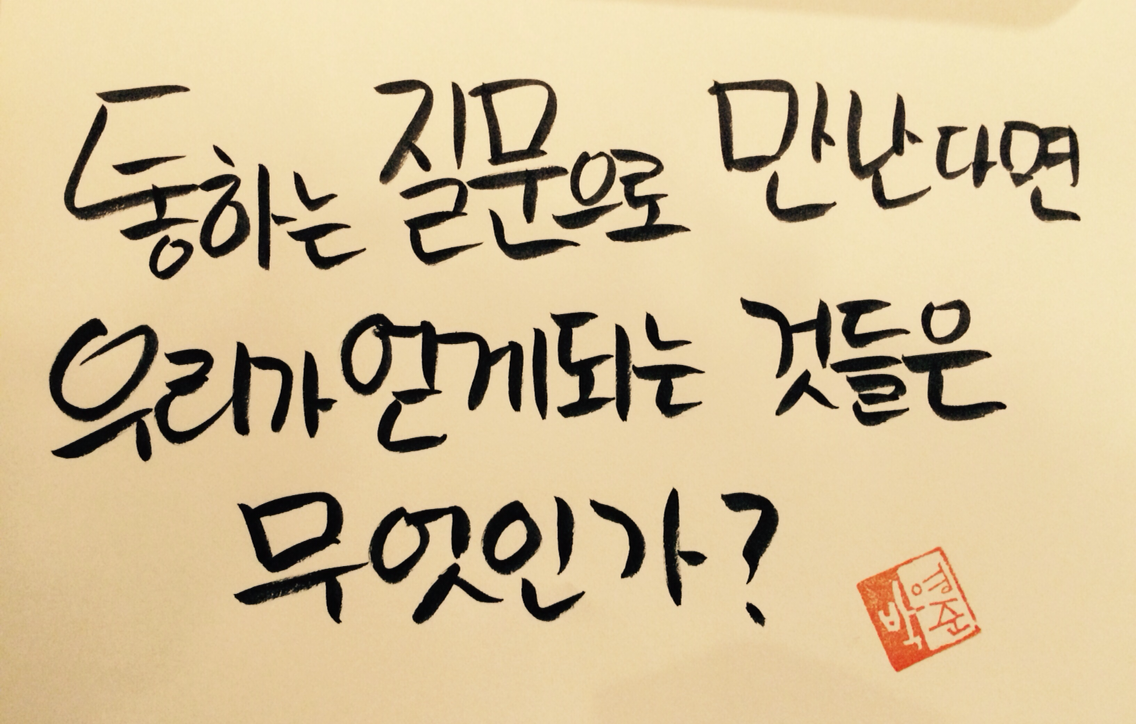 통하는 질문으로 만난다면
우리가 얻게되는 것들은
무엇인가?